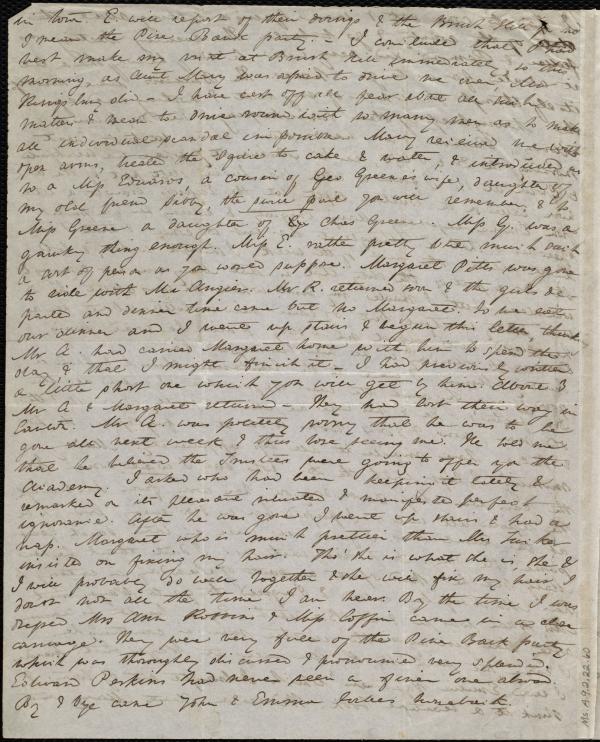 in town E. will report of their doings & the Brush Hill
I mean the Pine Bank party. I conclude that I had
best make my visit at Brush Hill immediately so this
morning, as Aunt Mary was afraid to drive me over, Mr
Kingsbury did - I have cast off all fear about all such
matters & mean to drive round with so many men as to make
all individual scandal impossible. Mary received me with
open arms, treated the Squire to cake & water, & introduced me
to a Miss Edwards, a cousin of Geo Greene's wife, daughter of
my old friend Sibby, the juice pure you will remember, & to
Miss Greene a daughter of Chas Greene. Miss G. was a
gawky thing enough. Miss E. rather pretty but much such
a sort of person as you would suppose. Margaret Pitts was gone
to ride with Mr Angier. Mr R. returned soon & the girls de-
parted and dinner time came but no Margaret. So we eat
our dinner and I went up stairs & began this letter, thinking
Mr A. had carried Margaret home with him to spend the
day & that I might finish it - I had previously written
a little short one which you will get by him. About 3
Mr A & Margaret returned - They had lost their way in
Canton. Mr A. was politely sorry that he was to be
gone all next week & thus lose seeing me. He told me
that he believed the Trustees were going to offer you the
Academy. I asked who had been keeping it lately &
remarked on its pleasant situation & manifested perfect
ignorance. After he was gone I went up stairs & had a
nap. Margaret who is much prettier than Mrs
insisted on fixing my hair. Tho' she is what she is she &
I will probably do well together & she will fix my hair I
doubt not all the time I am here. By the time I was
dressed Mrs Ann Robbins & Miss Coffin came in a close
carriage. They were very full of the Pine Bank party
which was thoroughly discussed & pronounced very splendid.
Edward Perkins had never seen a finer one abroad.
By & bye came John & Emma Forbes horseback.
Ms. A. 9. 2. 22. 60